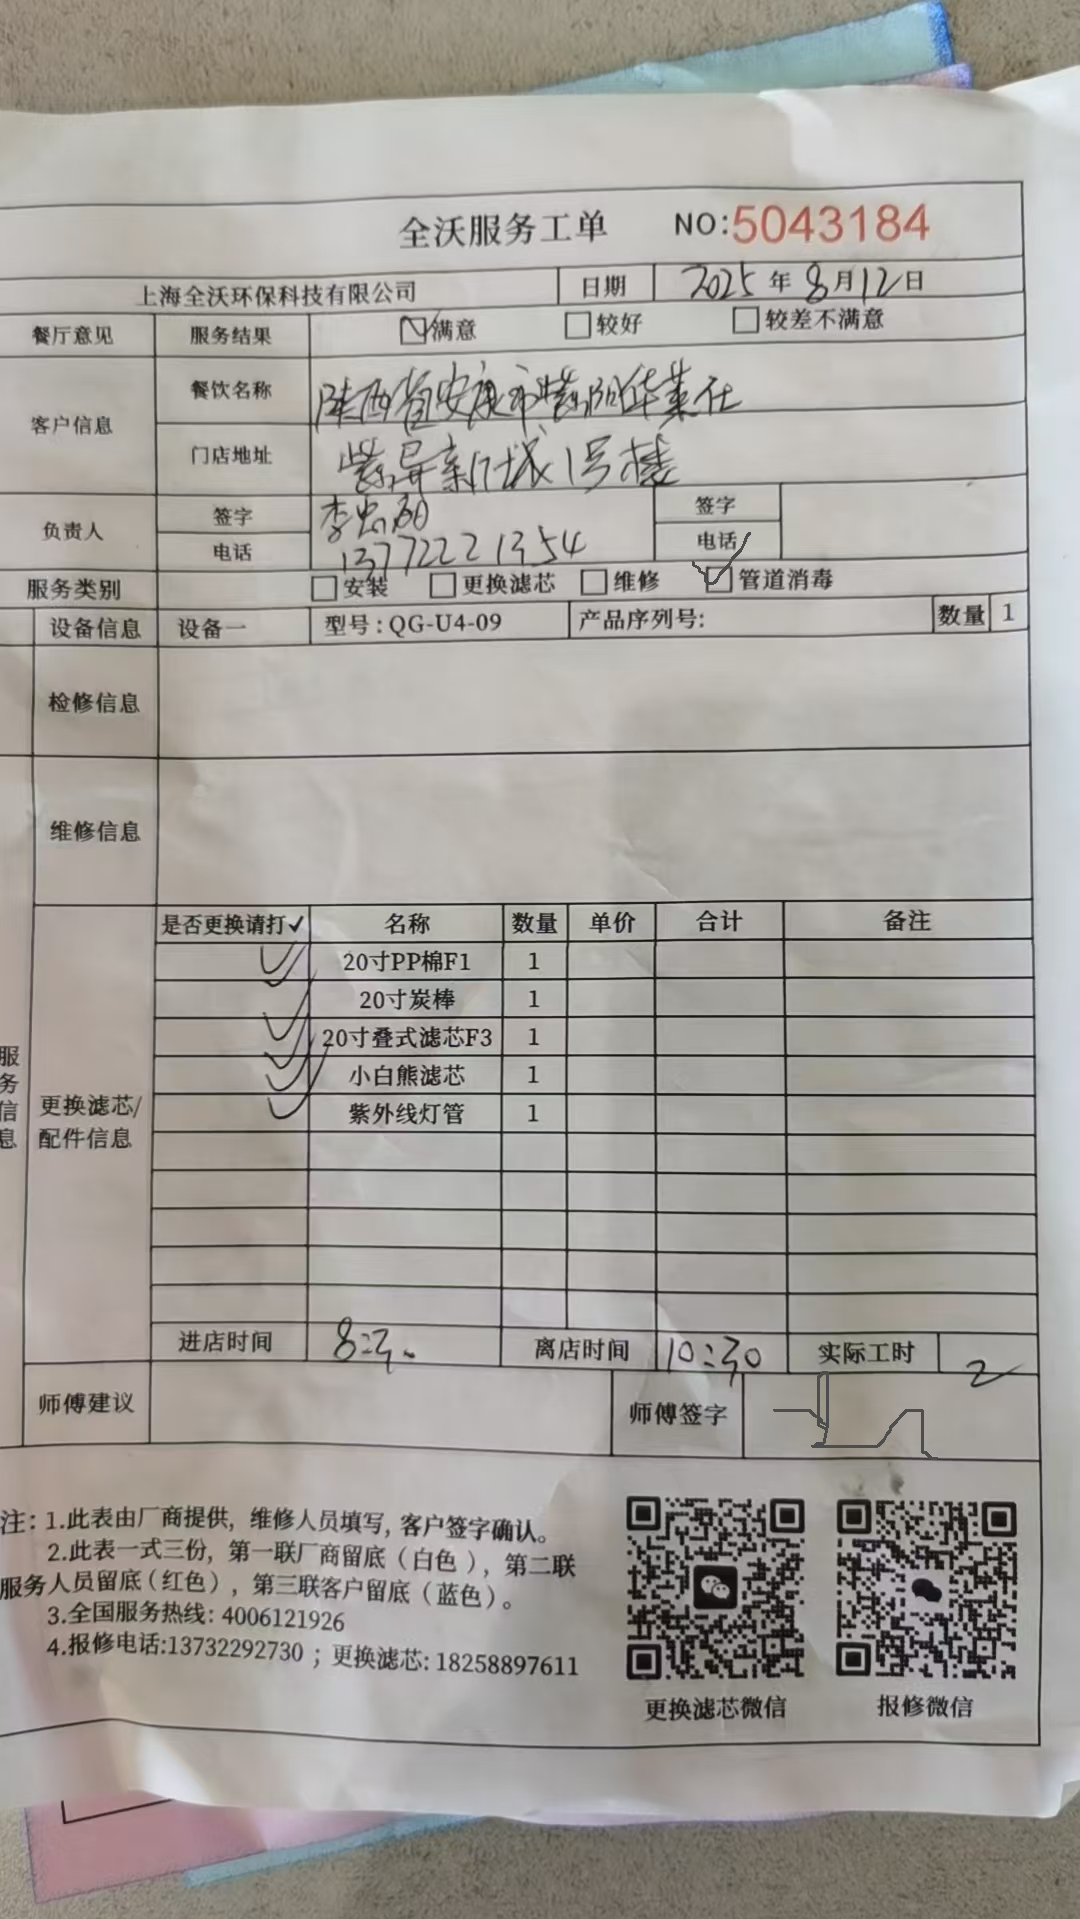 全沃服务工单 NO:5043184
上海全沃环保科技有限公司 日期 2025年8月12日
餐厅意见 服务结果 满意 较好 较差不满意
客户信息 餐饮名称 陕西省安康市紫阳华莱仕
门店地址 紫昇新城1号楼
负责人 签字 李忠 签字
电话 13772221354 电话
服务类别 安装 更换滤芯 维修 管道消毒
设备信息 设备一 型号:QG-U4-09 产品序列号: 数量 1
检修信息
维修信息
服务信息
更换滤芯/配件信息
是否更换请打✓ 名称 数量 单价 合计 备注
✓ 20寸PP棉F1 1
✓ 20寸炭棒 1
✓ 20寸叠式滤芯F3 1
✓ 小白熊滤芯 1
✓ 紫外线灯管 1
进店时间 8:30 离店时间 10:30 实际工时 2
师傅建议 师傅签字
注: 1.此表由厂商提供, 维修人员填写, 客户签字确认。
2.此表一式三份, 第一联厂商留底(白色), 第二联
服务人员留底(红色), 第三联客户留底(蓝色)。
3.全国服务热线: 4006121926
4.报修电话:13732292730 ; 更换滤芯: 18258897611
更换滤芯微信 报修微信